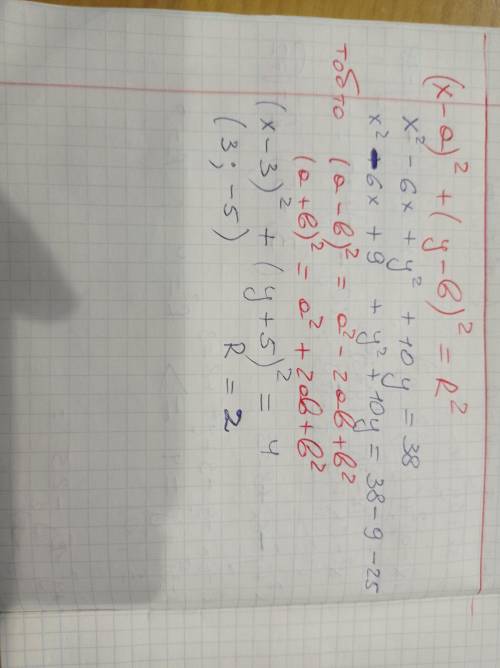 (x-a)² + (y-b)² = R²
x² - 6x + y² + 10y = 38
x² - 6x + 9 + y² + 10y = 38 - 9 - 25
тобто (a-b)² = a² - 2ab + b²
(a+b)² = a² + 2ab + b²
(x-3)² + (y+5)² = 4
(3; -5) R = 2